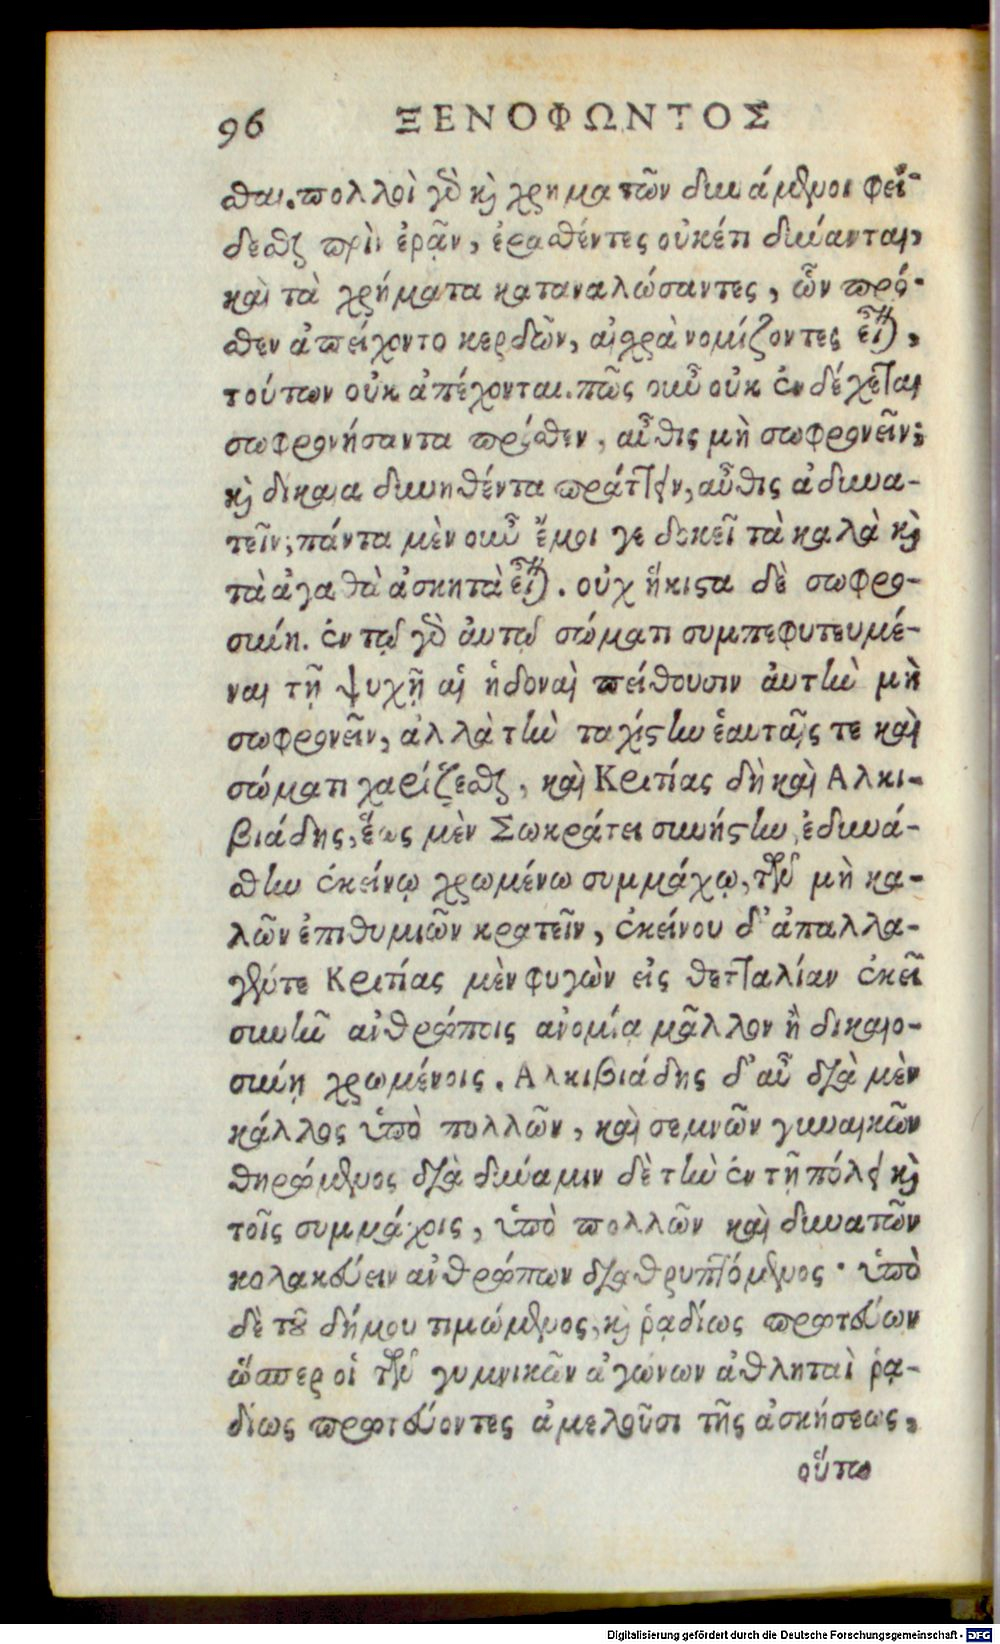 96 ΞΕΝΟΦΩΝΤΟΣ
σθαι. πολλοὶ γὸ καὶ χρημάτων δυνάμενοι φεί-
δεσθαι πρὶν ἐρᾷν, ἐρασθέντες οὐκέτι δύνανται,
καὶ τὰ χρήματα καταναλώσαντες, ὧν πρό-
σθεν ἀπείχοντο κερδῶν, αἰσχρὰ νομίζοντες εἶναι,
τούτων οὐκ ἀπέχονται. πῶς οὖν οὐκ ἐνδέχεται
σωφρονήσαντα πρόσθεν, αὖθις μὴ σωφρονεῖν;
καὶ δίκαια δυνηθέντα πράττειν, αὖθις ἀδυνα-
τεῖν; πάντα μὲν οὖν ἔμοι γε δοκεῖ τὰ καλὰ καὶ
τὰ ἀγαθὰ ἀσκητὰ εἶναι. οὐχ ἥκιστα δὲ σωφρο-
σύνη. ἐν τῷ γὸ ἀυτῷ σώματι συμπεφυτευμέ-
ναι τῇ ψυχῇ αἱ ἡδοναὶ πείθουσιν ἀυτὴν μὴ
σωφρονεῖν, ἀλλὰ τὴν ταχίστην ἑαυταῖς τε καὶ
σώματι χαρίζεσθαι, καὶ Κριτίας δὴ καὶ Αλκι-
βιάδης, ἕως μὲν Σωκράτει συνήστην, ἐδυνά-
σθην ἐκείνῳ χρωμένω συμμάχῳ, τῶν μὴ κα-
λῶν ἐπιθυμιῶν κρατεῖν, ἐκείνου δ' ἀπαλλα-
γέντε Κριτίας μὲν φυγὼν εἰς θετταλίαν ἐκεῖ
συνῆν ἀνθρώποις ἀνομίᾳ μᾶλλον ἢ δικαιο-
σύνῃ χρωμένοις. Αλκιβιάδης δ' αὖ διὰ μὲν
κάλλος ὑπὸ πολλῶν, καὶ σεμνῶν γυναικῶν
θηρώμενος διὰ δύναμιν δὲ τὴν ἐν τῇ πόλει καὶ
τοῖς συμμάχοις, ὑπὸ πολλῶν καὶ δυνατῶν
κολακεύειν ἀνθρώπων διαθρυπτόμενος · ὑπὸ
δὲ τοῦ δήμου τιμώμενος, καὶ ῥᾳδίως πρωτεύων
ὥσπερ οἱ τῶν γυμνικῶν ἀγώνων ἀθληταὶ ῥᾳ-
δίως πρωτεύοντες ἀμελοῦσι τῆς ἀσκήσεως,
οὕτω
Digitalisierung gefördert durch die Deutsche Forschungsgemeinschaft - DFG